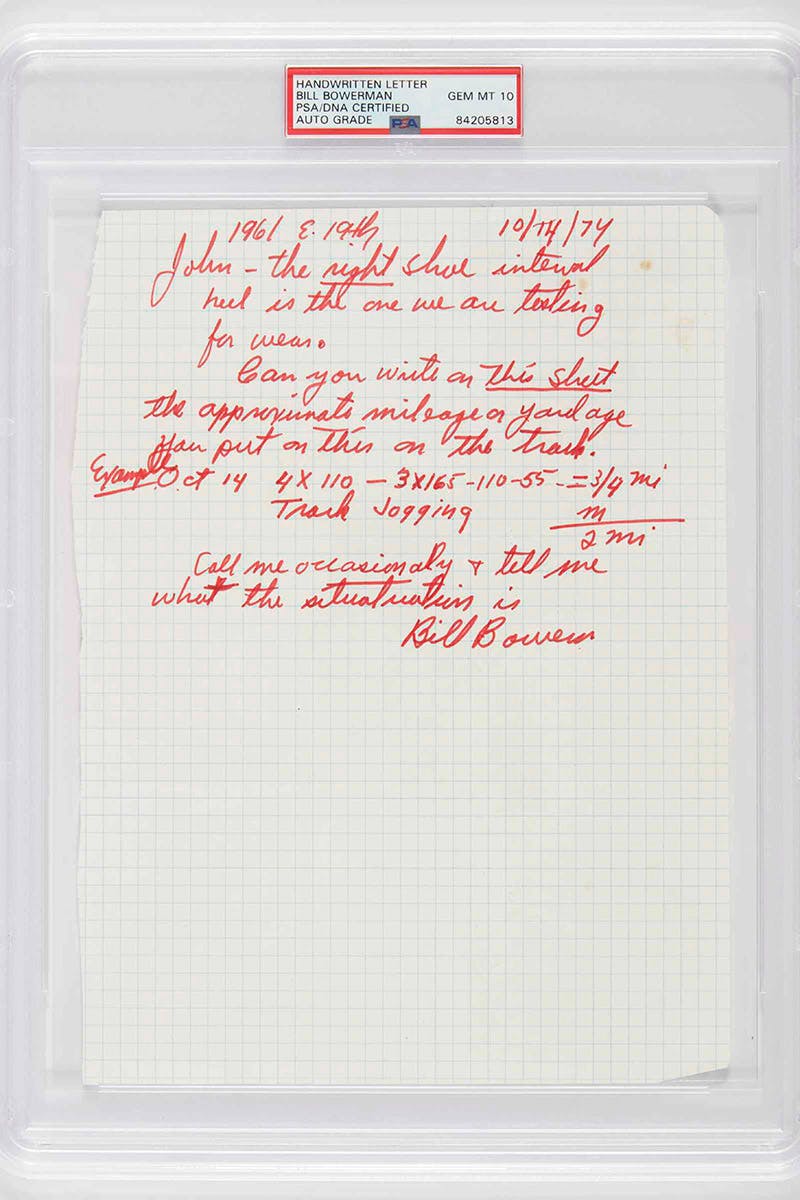 HANDWRITTEN LETTER
BILL BOWERMAN
PSA/DNA CERTIFIED GEM MT 10
AUTO GRADE PSA 84205813
1961 E. 19th 10/14/74
John – the right shoe
heel is the one we are testing
for wear.
Can you write on this sheet
the approximate mileage or yardage
you put on this on the track.
Example Oct 14 4 X 110 – 3X165-110-55-=3/4 mi
Track Jogging m
2 mi
Call me occasionaly & tell me
what the situatuation is
Bill Bowerm